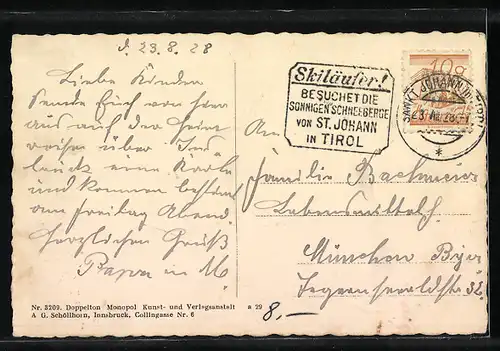 d. 23.8.28
Liebe Kinder
Sende Euch von hier
aus auf der Heim
reise über Inns
bruck eine Karte
und kommen bestimmt
am Freitag Abend.
Herzlichen Gruß
Papa u. M
Skiläufer!
BESUCHET DIE
SONNIGEN SCHNEEBERGE
VON ST. JOHANN
IN TIROL
10g
SANKT JOHANN IN TIROL
23.VIII.28
*
An
Familie Bachmeier
Lebensmittelh
München
Tegernseerldstr 32.
Nr. 3209. Doppelton Monopol Kunst- und Verlagsanstalt a 29
A G. Schöllhorn, Innsbruck, Collingasse Nr. 6
8,—